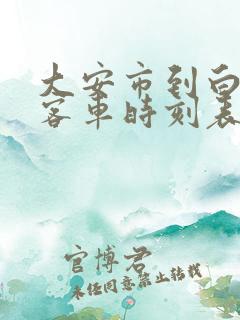 大安市到白
客車時刻表
官博君
未经同意禁止转载